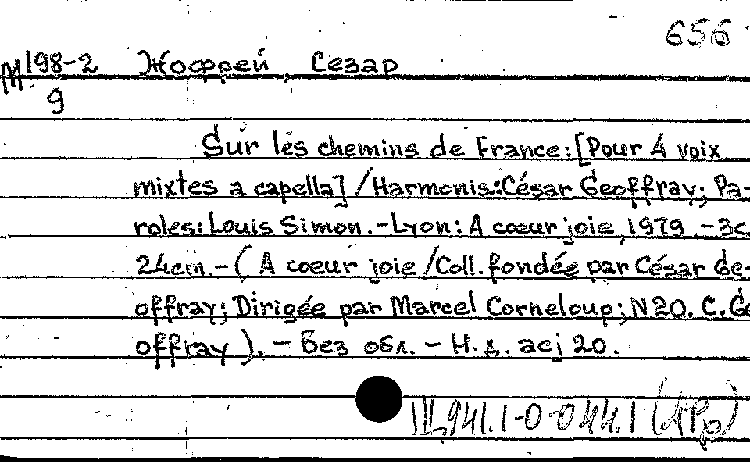 656
М 198-2 Жоффей, Сезар
9
Sur les chemins de France: [Pour 4 voix
mixtes a capella] / Harmonis.: César Geoffray; Pa-
roles: Louis Simon. - Lyon: A coeur joie, 1979. - 3с.
24cm. - (A coeur joie / Coll. fondée par César Ge-
offray; Dirigée par Marcel Corneloup; N20. C. Ge
offray). - Без обл. - Н. д. acj 20.
Ш941.1-0-044.1